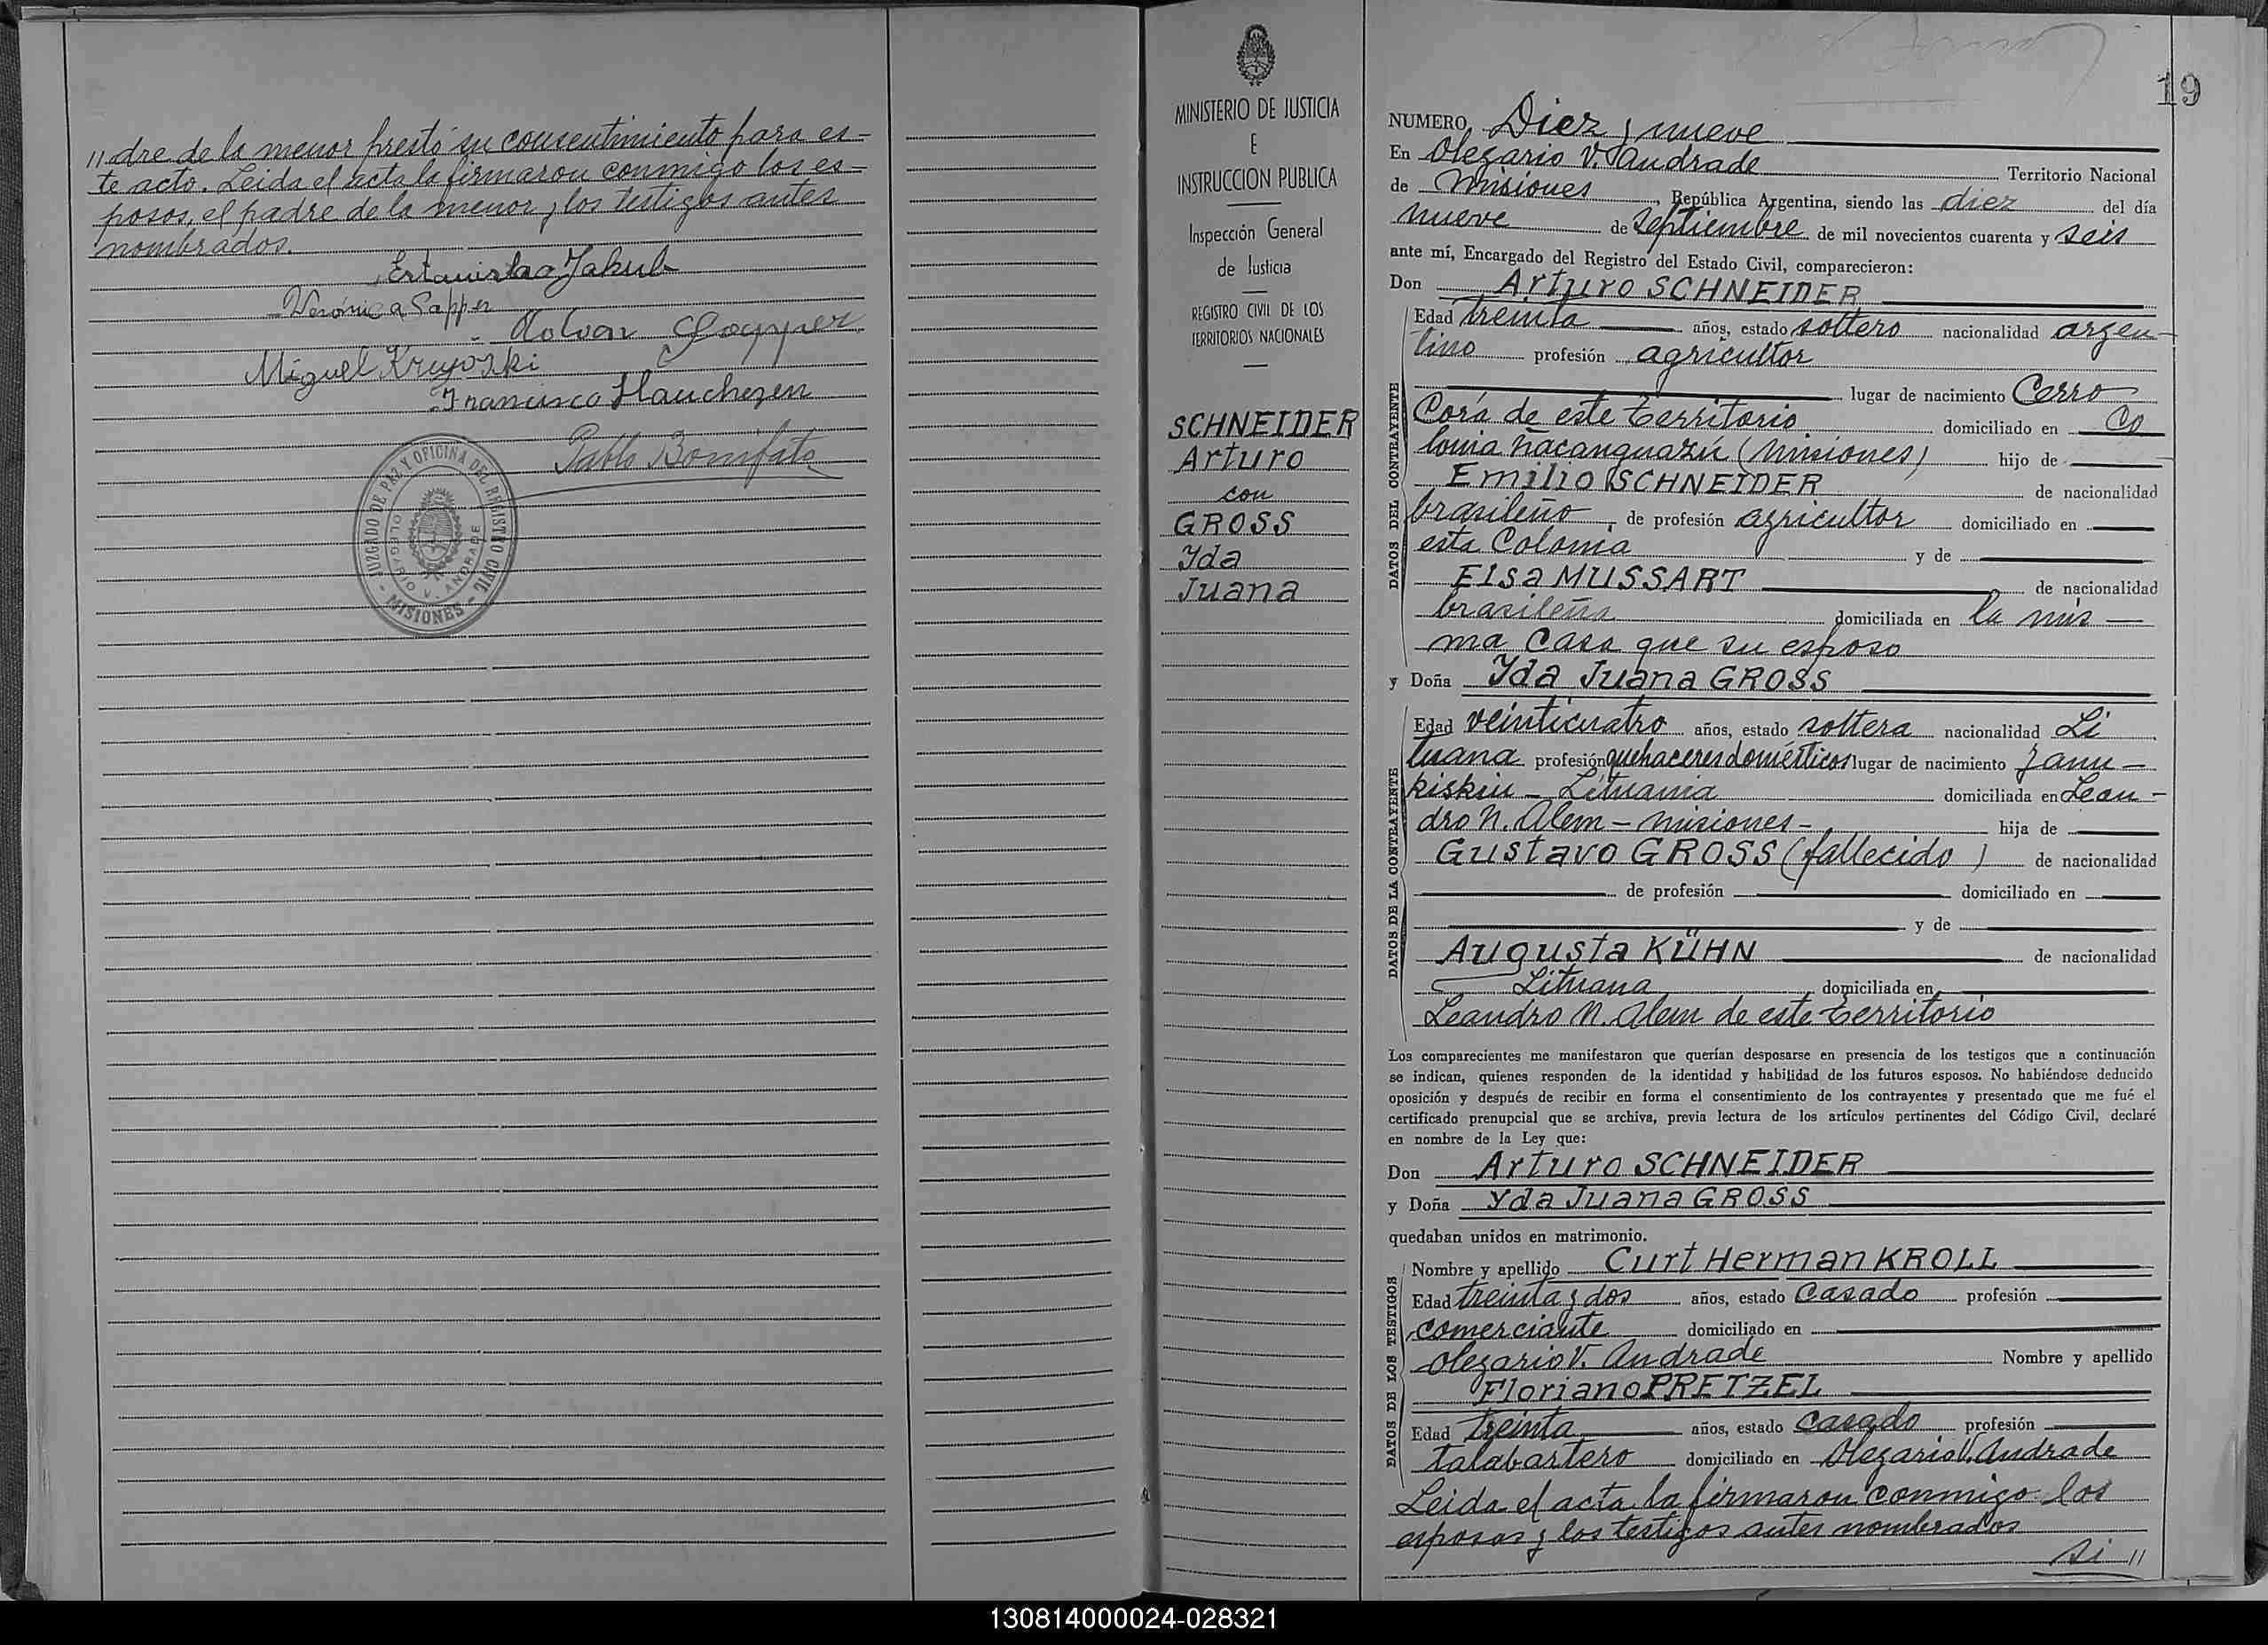 // dre de la menor prestó su consentimiento para es-
te acto. Leida el acta la firmaron conmigo los es-
posos, el padre de la menor y los testigos antes
nombrados.
Estanislao Jakub
Verónica Sapper
Miguel
Francisco
Pablo Bonifato
JUZGADO DE PAZ Y OFICINA DEL REGISTRO CIVIL
OLEGARIO V. ANDRADE
- MISIONES -
MINISTERIO DE JUSTICIA
E
INSTRUCCION PUBLICA
Inspección General
de Justicia
REGISTRO CIVIL DE LOS
TERRITORIOS NACIONALES
SCHNEIDER
Arturo
con
GROSS
Yda
Juana
19
NUMERO Diez y nueve
En Olegario V. Andrade Territorio Nacional
de Misiones, República Argentina, siendo las diez del día
nueve de Septiembre de mil novecientos cuarenta y seis
ante mí, Encargado del Registro del Estado Civil, comparecieron:
Don Arturo SCHNEIDER
DATOS DEL CONTRAYENTE
Edad treinta años, estado soltero nacionalidad argen-
tino profesión agricultor
lugar de nacimiento Cerro
Corá de este territorio domiciliado en Co
lonia Ñacanguazú (Misiones) hijo de
Emilio SCHNEIDER de nacionalidad
brasileño, de profesión agricultor domiciliado en
esta Colonia y de
Elsa MUSSART de nacionalidad
brasileña domiciliada en la mis-
ma casa que su esposo
y Doña Yda Juana GROSS
DATOS DE LA CONTRAYENTE
Edad veinticuatro años, estado soltera nacionalidad Li
tuana profesión quehaceres domésticos lugar de nacimiento Janu-
kiskiu - Lituania domiciliada en Lean-
dro N. Alem - Misiones - hija de
Gustavo GROSS (fallecido) de nacionalidad
de profesión domiciliado en
y de
Augusta KÜHN de nacionalidad
Lituana domiciliada en
Leandro N. Alem de este territorio
Los comparecientes me manifestaron que querían desposarse en presencia de los testigos que a continuación
se indican, quienes responden de la identidad y habilidad de los futuros esposos. No habiéndose deducido
oposición y después de recibir en forma el consentimiento de los contrayentes y presentado que me fué el
certificado prenupcial que se archiva, previa lectura de los artículos pertinentes del Código Civil, declaré
en nombre de la Ley que:
Don Arturo SCHNEIDER
y Doña Yda Juana GROSS
quedaban unidos en matrimonio.
DATOS DE LOS TESTIGOS
Nombre y apellido Curt Herman KROLL
Edad treinta y dos años, estado casado profesión
comerciante domiciliado en
Olegario V. Andrade Nombre y apellido
Floriano PRETZEL
Edad treinta años, estado casado profesión
talabartero domiciliado en Olegario V. Andrade
Leida el acta la firmaron conmigo los
esposos y los testigos antes nombrados
si //
130814000024-028321